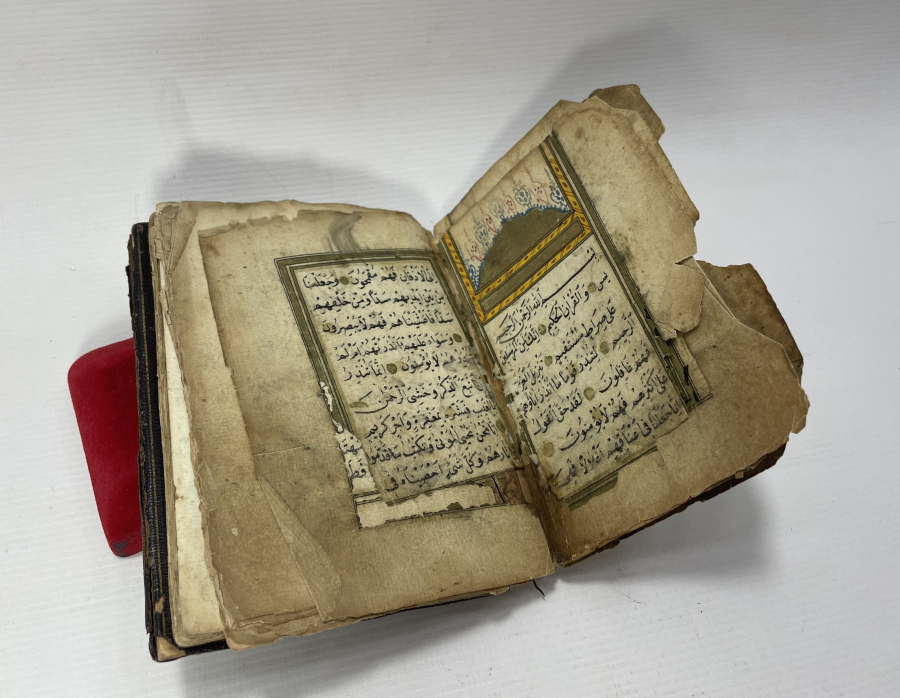 بسم الله الرحمن الرحيم
يس والقرآن الحكيم انك لمن المرسلين
على صراط مستقيم تنزيل العزيز
الرحيم لتنذر قوما ما انذر اباؤهم
فهم غافلون لقد حق القول
على اكثرهم فهم لا يؤمنون
انا جعلنا في اعناقهم اغلالا فهي
الى الاذقان فهم مقمحون وجعلنا
من بين ايديهم سدا ومن خلفهم
سدا فاغشيناهم فهم لا يبصرون
وسواء عليهم ءانذرتهم ام لم
تنذرهم لا يؤمنون انما تنذر
اتبع الذكر وخشي الرحمن
بالغيب فبشره بمغفرة واجر كريم
انا نحن نحيي الموتى ونكتب ما قدموا
واثارهم وكل شيء احصيناه في